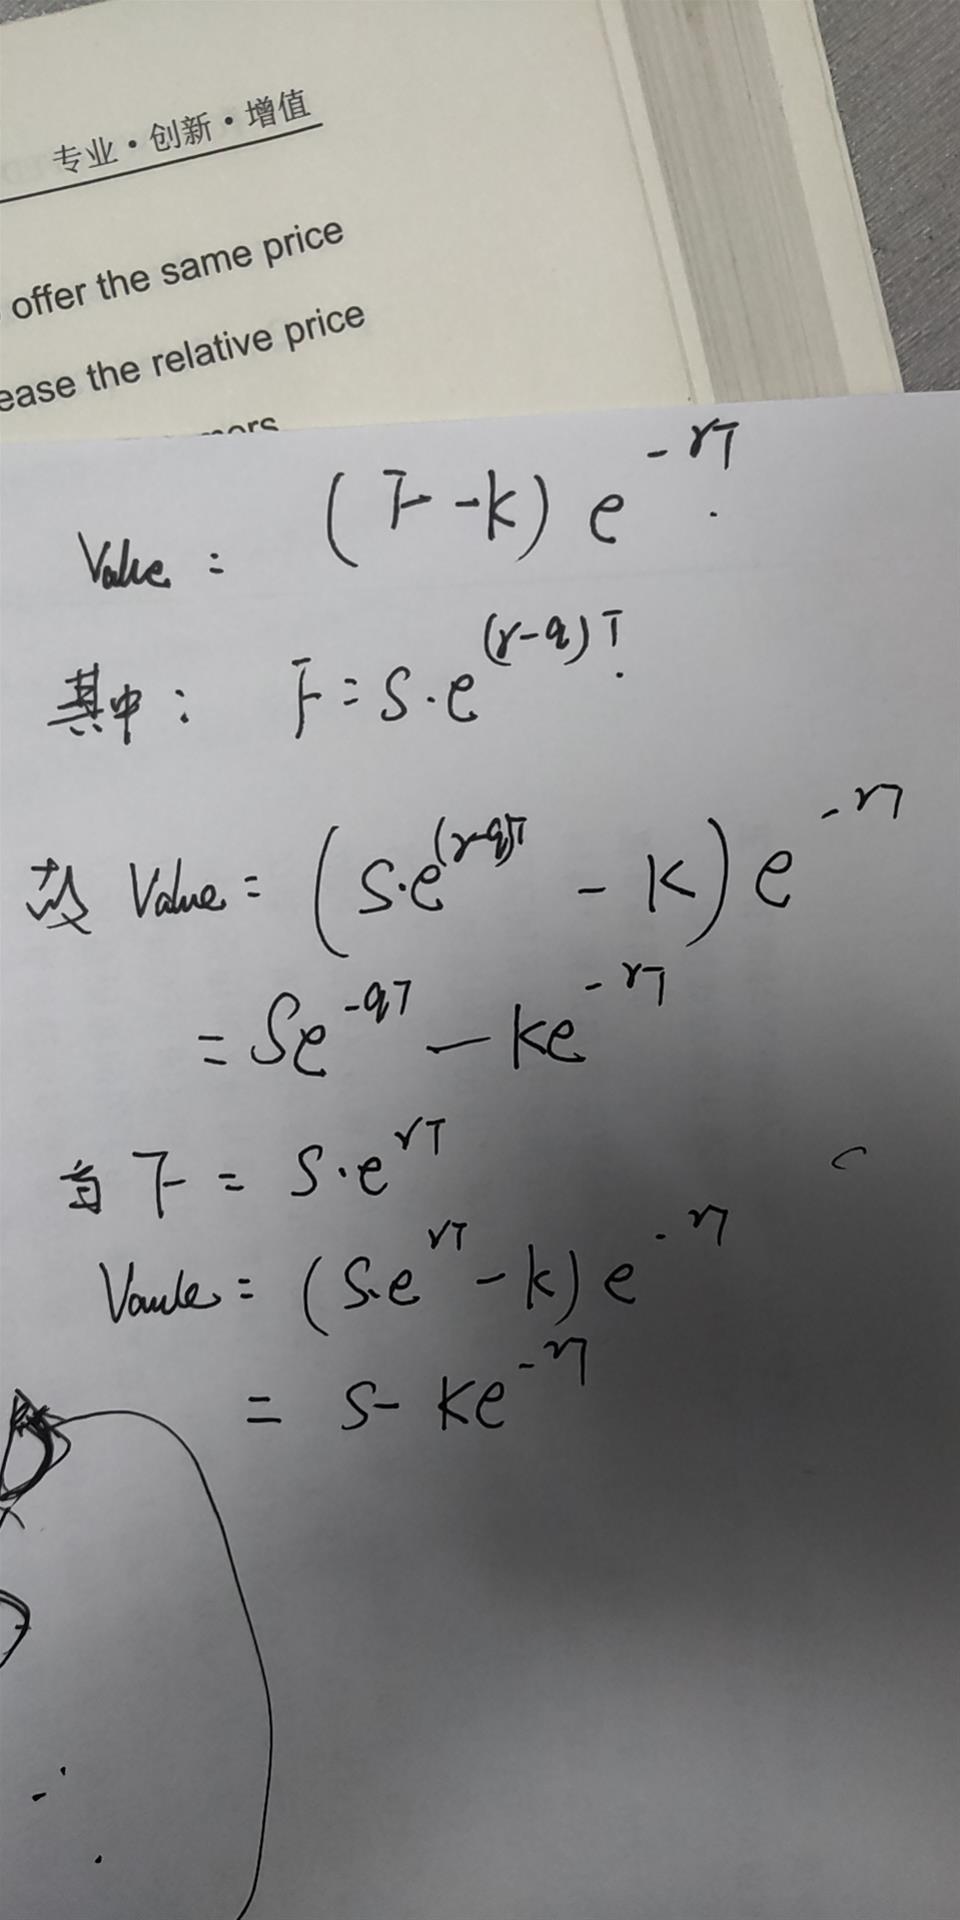 专业·创新·增值
offer the same price
ease the relative price
Value: (F-K) e^{-rT}.
其中: F=S·e^{(r-q)T}.
故 Value = (S·e^{(r-q)T} - K) e^{-rT}
= Se^{-qT} - Ke^{-rT}
当 F = S·e^{rT}
Vaule = (S·e^{rT} - K) e^{-rT}
= S - Ke^{-rT}